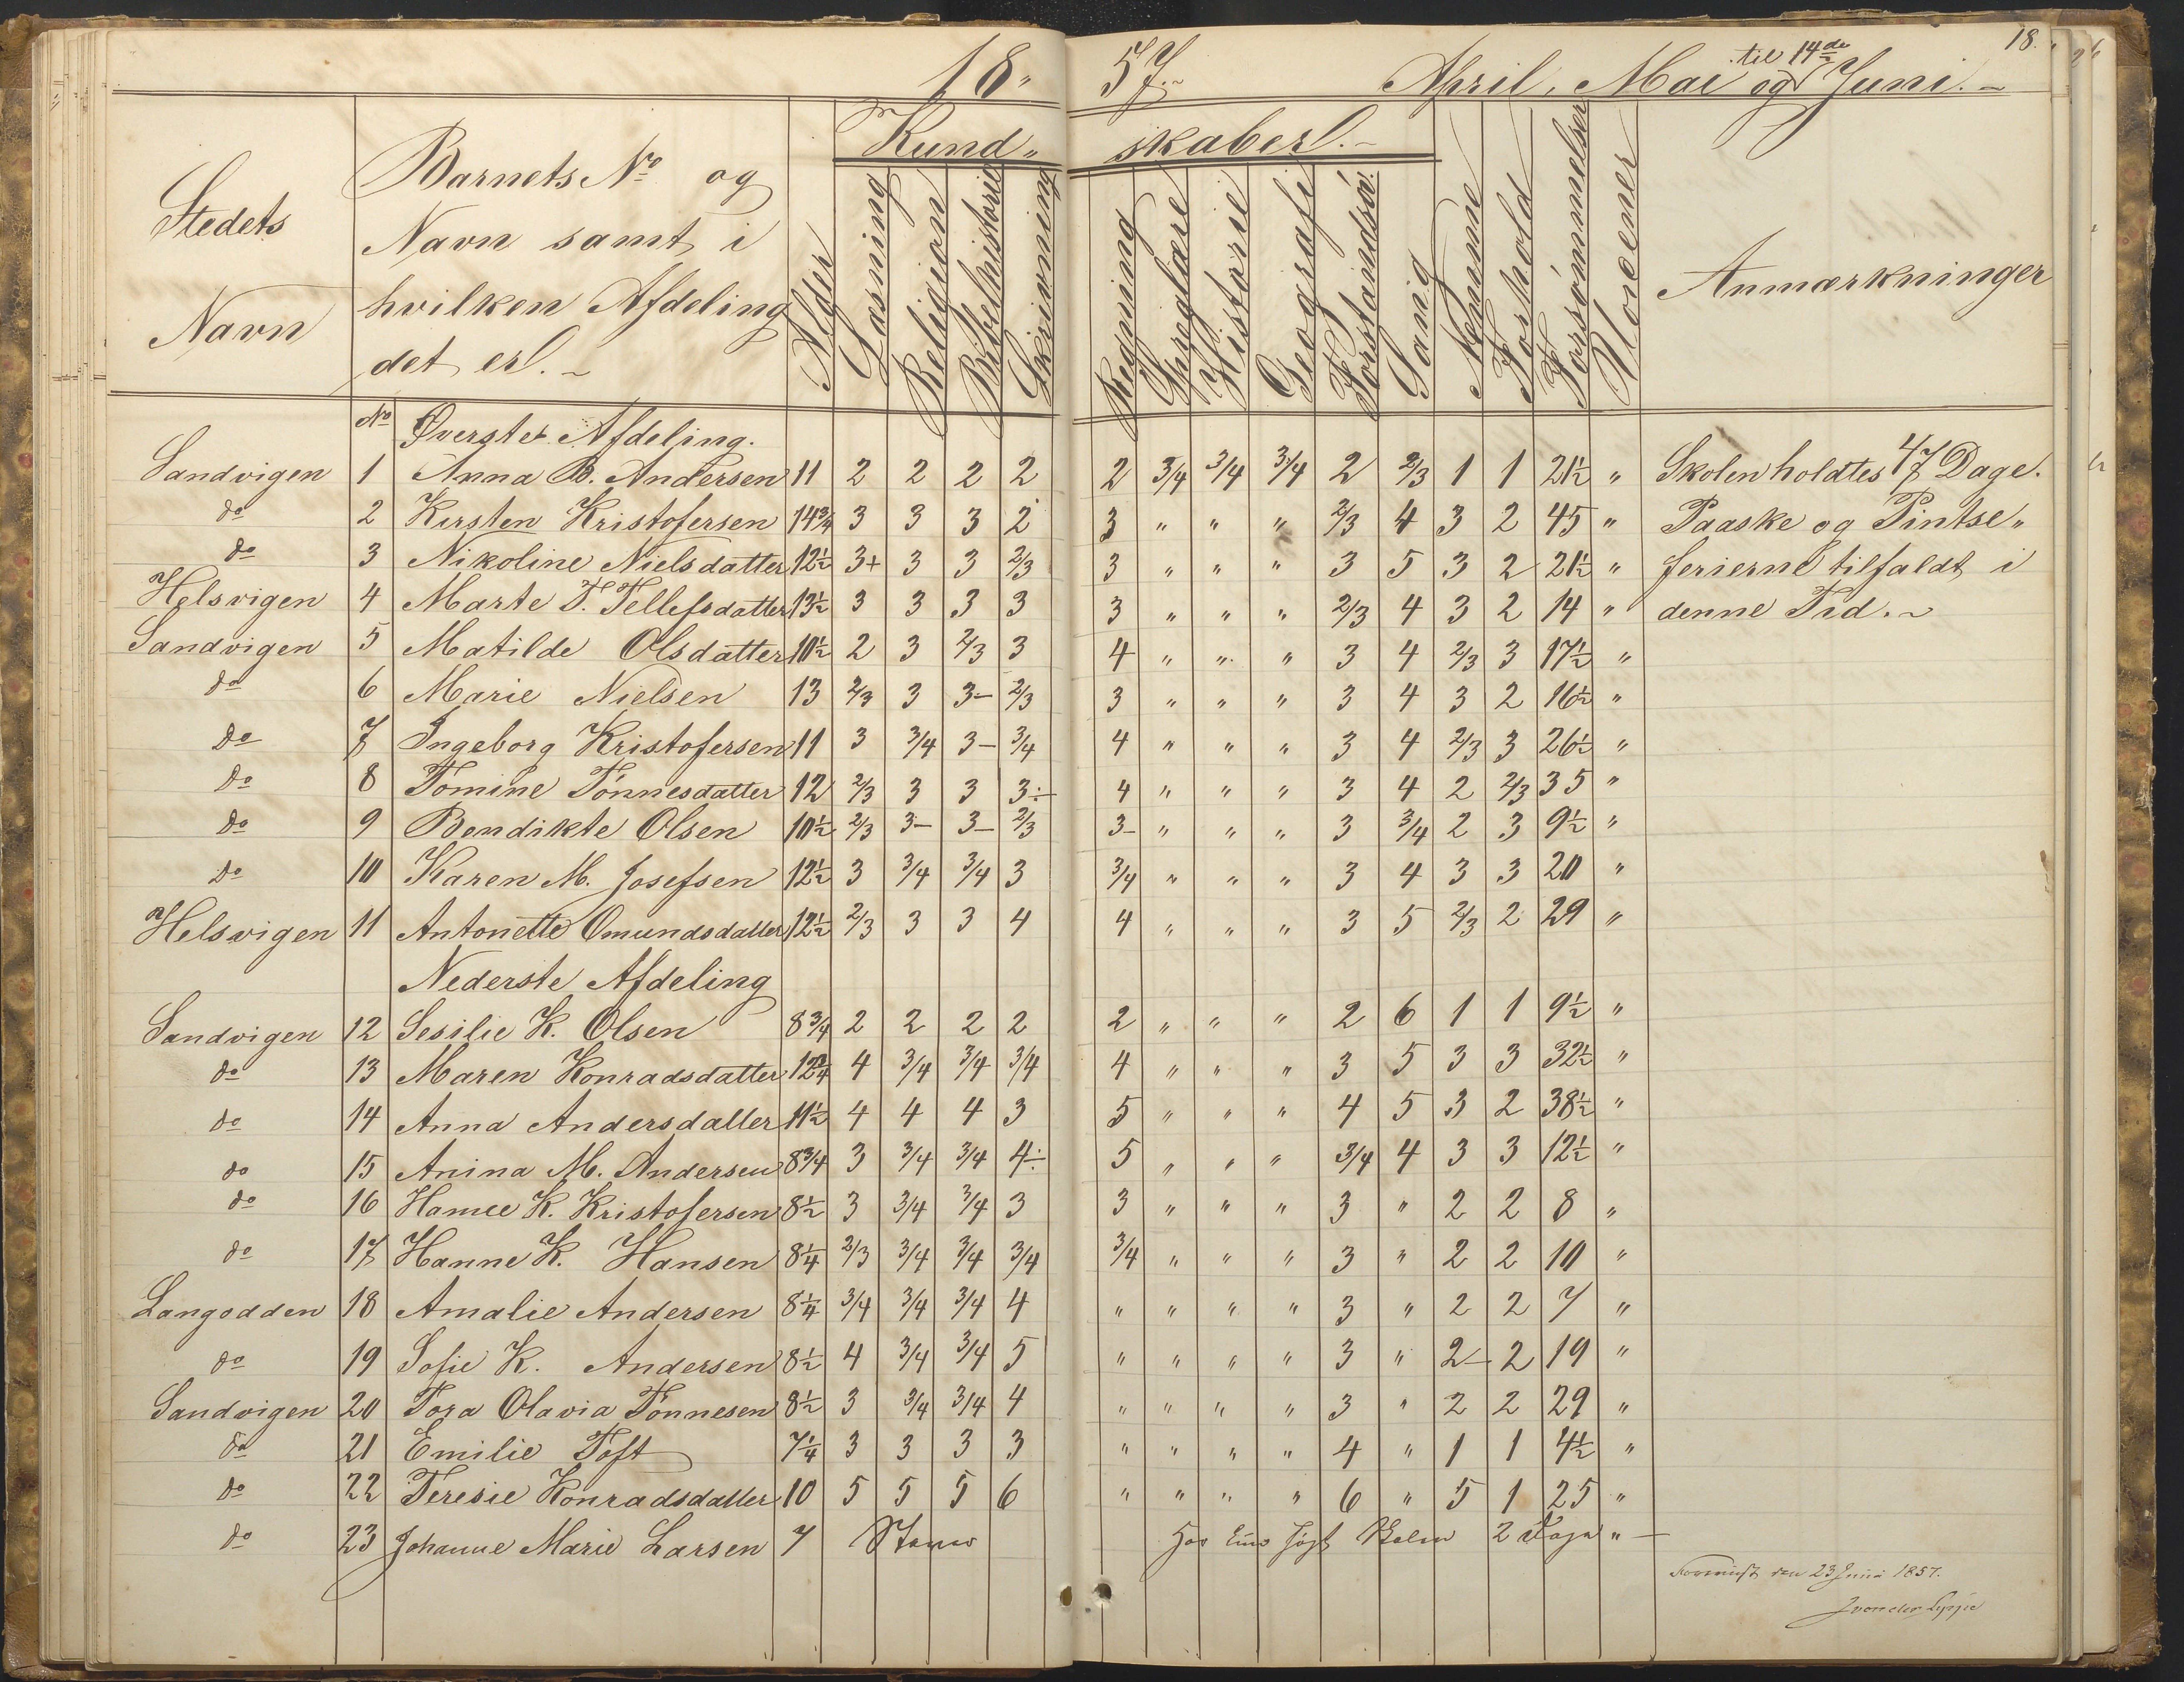 18.
18 " 57.~ April, Mai og til 14de Juni.~
Kund " skaber.~
Stedets Navn
Barnets No og
Navn samt i
hvilken Afdeling
det er.~
Alder Læsning Religion Bibelhistorie Skrivning Regning Sproglære Historie Geografi Forstandsøv. Sang Nemme Forhold Forsømmelser Uvæner Anmærkninger
No Øverste Afdeling.
Sandvigen 1 Anna B. Andersen 11 2 2 2 2 2 3/4 3/4 3/4 2 2/3 1 1 21½ " Skolen holdtes 47 Dage.
do 2 Kirsten Kristofersen 14¾ 3 3 3 2 3 " " " 2/3 4 3 2 45 " Paaske og Pintse "
do 3 Nikoline Nielsdatter 12½ 3+ 3 3 2/3 3 " " " 3 5 3 2 21½ " ferierne tilfaldt i
Helsvigen 4 Marte T. Tellefsdatter 13½ 3 3 3 3 3 " " " 2/3 4 3 2 14 " denne Tid.~
Sandvigen 5 Matilde Olsdatter 10½ 2 3 2/3 3 4 " " " 3 4 2/3 3 17½ "
do 6 Marie Nielsen 13 2/3 3 3- 2/3 3 " " " 3 4 3 2 16½ "
do 7 Ingeborg Kristofersen 11 3 3/4 3- 3/4 4 " " " 3 4 2/3 3 26½ "
do 8 Tomine Tönnesdatter 12 2/3 3 3 3÷ 4 " " " 3 4 2 2/3 35 "
do 9 Bendikte Olsen 10½ 2/3 3- 3- 2/3 3- " " " 3 3/4 2 3 9½ "
do 10 Karen M. Josefsen 12½ 3 3/4 3/4 3 3/4 " " " 3 4 3 3 20 "
Helsvigen 11 Antonette Omundsdatter 12½ 2/3 3 3 4 4 " " " 3 5 2/3 2 29 "
Nederste Afdeling
Sandvigen 12 Sesilie K. Olsen 8¾ 2 2 2 2 2 " " " 2 6 1 1 9½ "
do 13 Maren Konradsdatter 12¾ 4 3/4 3/4 3/4 4 " " " 3 5 3 3 32½ "
do 14 Anna Andersdatter 11½ 4 4 4 3 5 " " " 4 5 3 2 38½ "
do 15 Anina M. Andersen 8¾ 3 3/4 3/4 4÷ 5 " " " 3/4 4 3 3 12½ "
do 16 K. Kristofersen 8½ 3 3/4 3/4 3 3 " " " 3 " 2 2 8 "
do 17 Hanne K. Hansen 8¼ 2/3 3/4 3/4 3/4 3/4 " " " 3 " 2 2 10 "
Langodden 18 Amalie Andersen 8¼ 3/4 3/4 3/4 4 " " " " 3 " 2 2 7 "
do 19 Sofie K. Andersen 8½ 4 3/4 3/4 5 " " " " 3 " 2- 2 19 "
Sandvigen 20 Tora Olavia Tönnesen 8½ 3 3/4 3/4 4 " " " " 3 " 2 2 29 "
do 21 Emilie Toft 7¼ 3 3 3 3 " " " " 4 " 1 1 4½ "
do 22 Teresie Konradsdatter 10 5 5 5 6 " " " " 6 " 5 1 25 "
do 23 Johanne Marie Larsen 7 Staver Har kun søgt Skolen 2 Dage " —
den 23 Juni 1857.
J von der Lippe